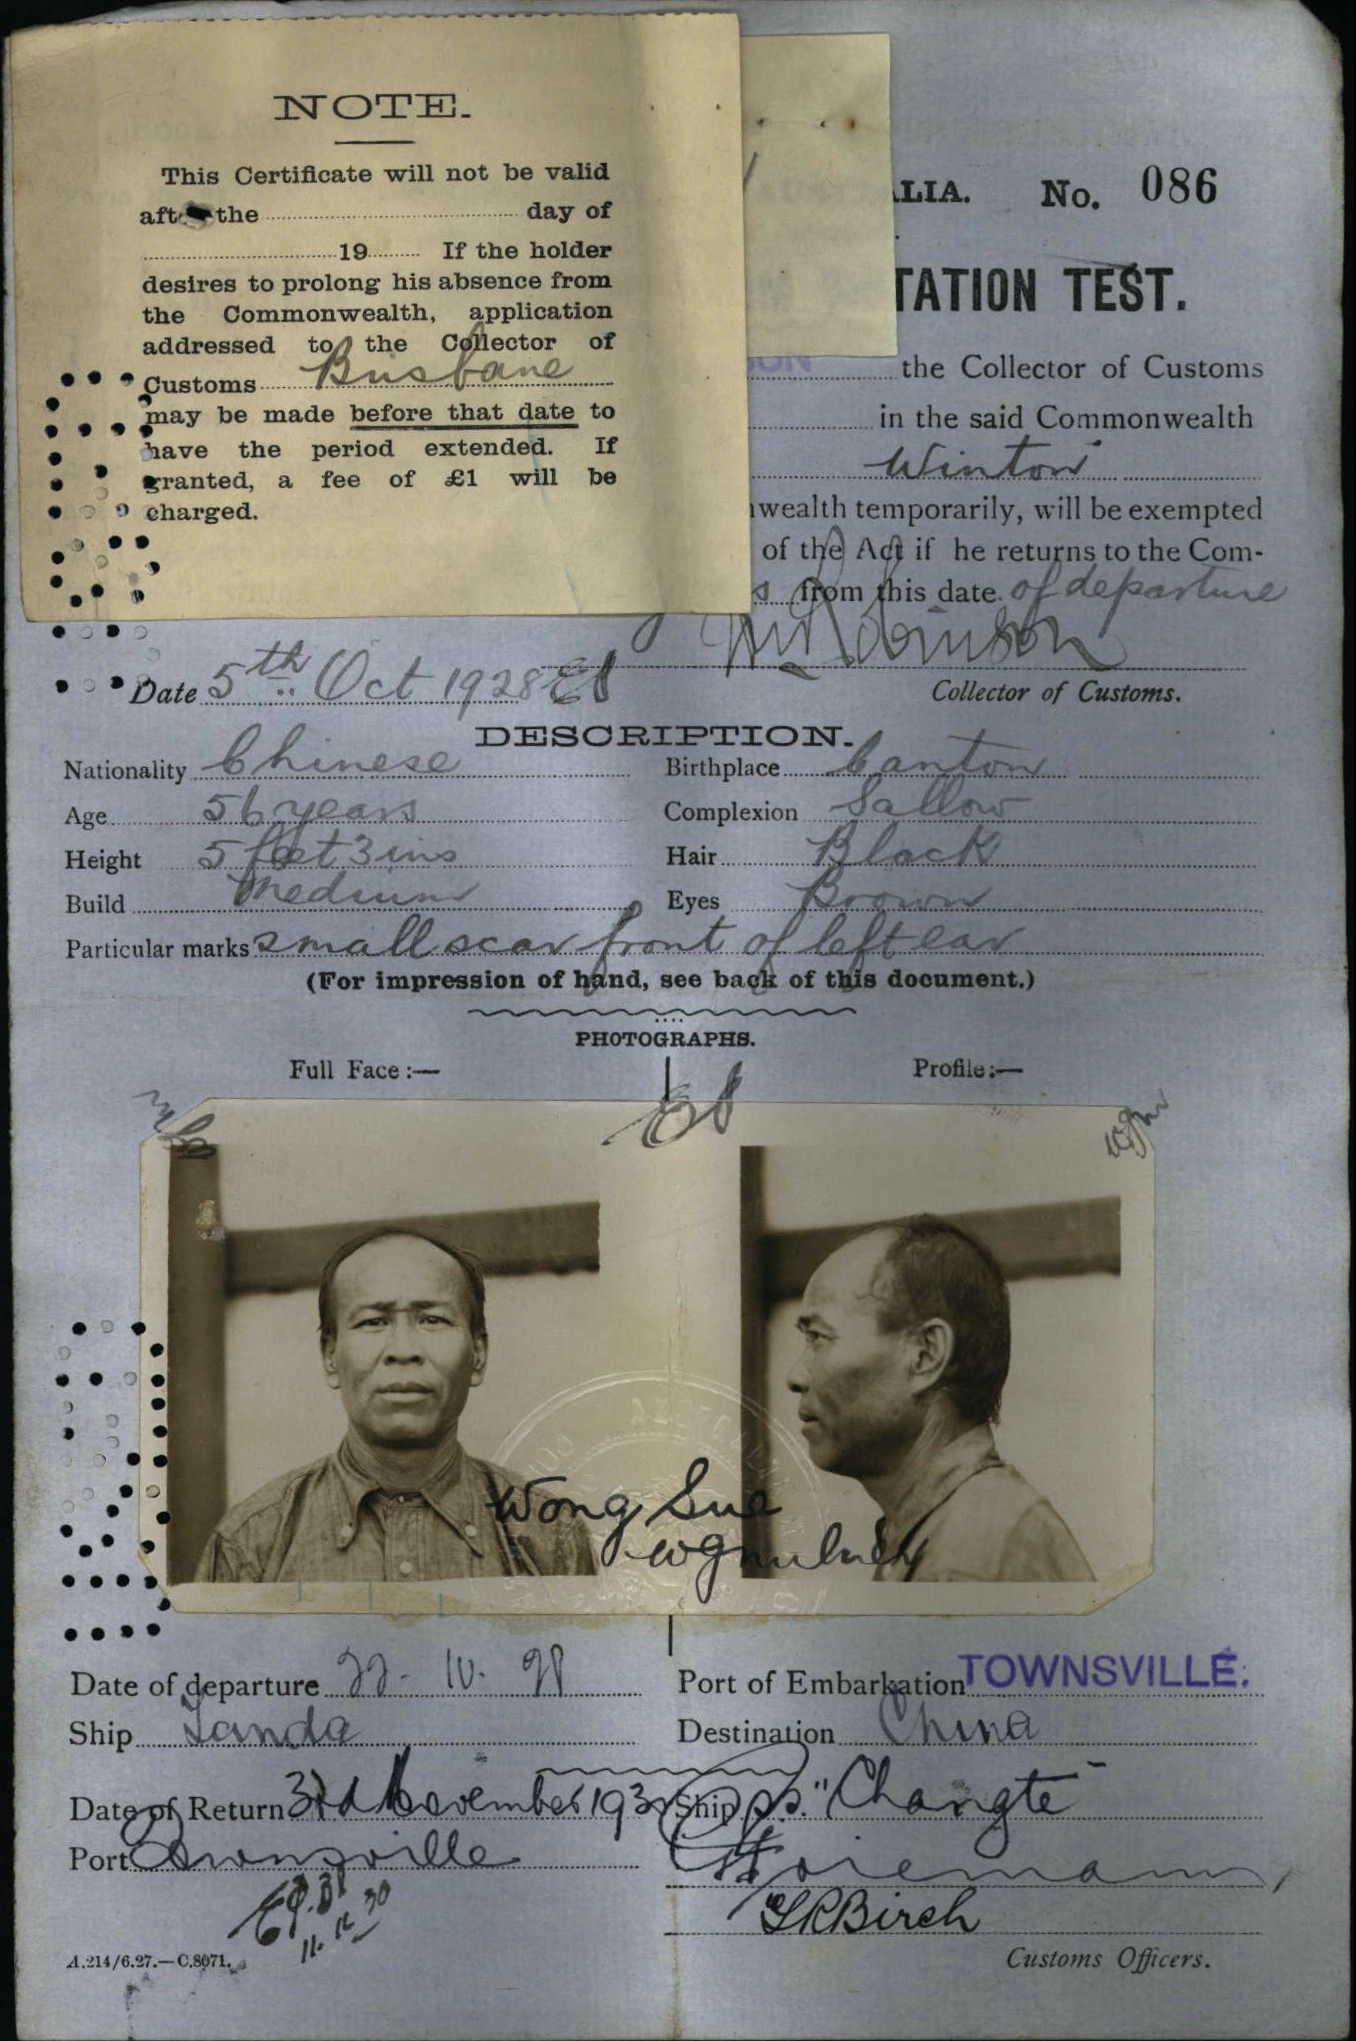 NOTE.
This Certificate will not be valid
aft the day of
19 If the holder
desires to prolong his absence from
the Commonwealth, application
addressed to the Collector of
Customs Brisbane
may be made before that date to
have the period extended. If
granted, a fee of £1 will be
charged.
ALIA. No. 086
TATION TEST.
SON the Collector of Customs
in the said Commonwealth
Winton
wealth temporarily, will be exempted
of the Act if he returns to the Com-
s from this date of departure
Date 5th Oct 1928
Collector of Customs.
DESCRIPTION.
Nationality Chinese Birthplace Canton
Age 56 years Complexion Sallow
Height 5 feet 3 ins Hair Black
Build Medium Eyes Brown
Particular marks small scar front of left ear
(For impression of hand, see back of this document.)
PHOTOGRAPHS.
Full Face :— Profile :—
Wong Sue
Date of departure 22. 10. 28 Port of Embarkation TOWNSVILLE.
Ship Tanda Destination China
Date of Return 3rd November 193 Ship s.s. "Changte"
Port Townsville
11. 12. 30
Birch
A.214/6.27.—C.8071. Customs Officers.